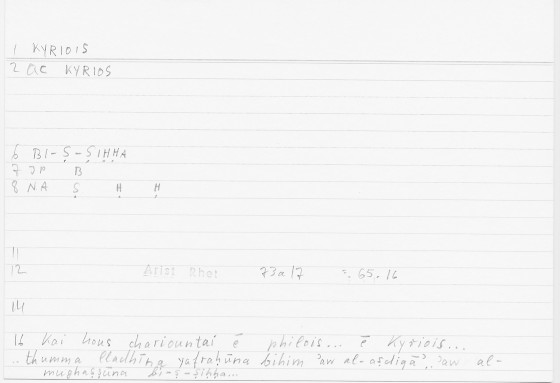 1 KYRIOIS
2 ac KYRIOS
6 BI-Ṣ-ṢIḤḤA
7 JP B
8 NA Ṣ Ḥ Ḥ
11
12 Arist Rhet 73a17 = 65.16
14
16 Kai hous chariountai ē philois... ē Kyriois...
.. thumma lladhīna yafraḥūna bihim ʾaw al-aṣdiqāʾ, ʾaw al-
bi-ṣ-ṣiḥḥa...